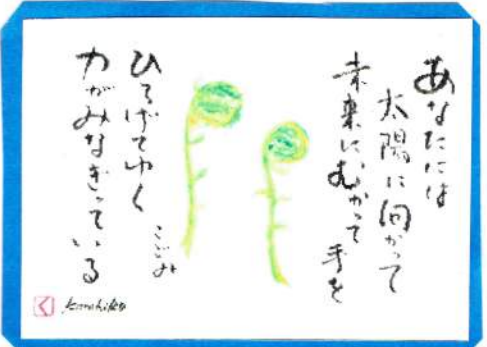 あなたには
太陽に向かって
未来にむかって 手を
ひろげてゆく
力がみなぎっている
こごみ
く